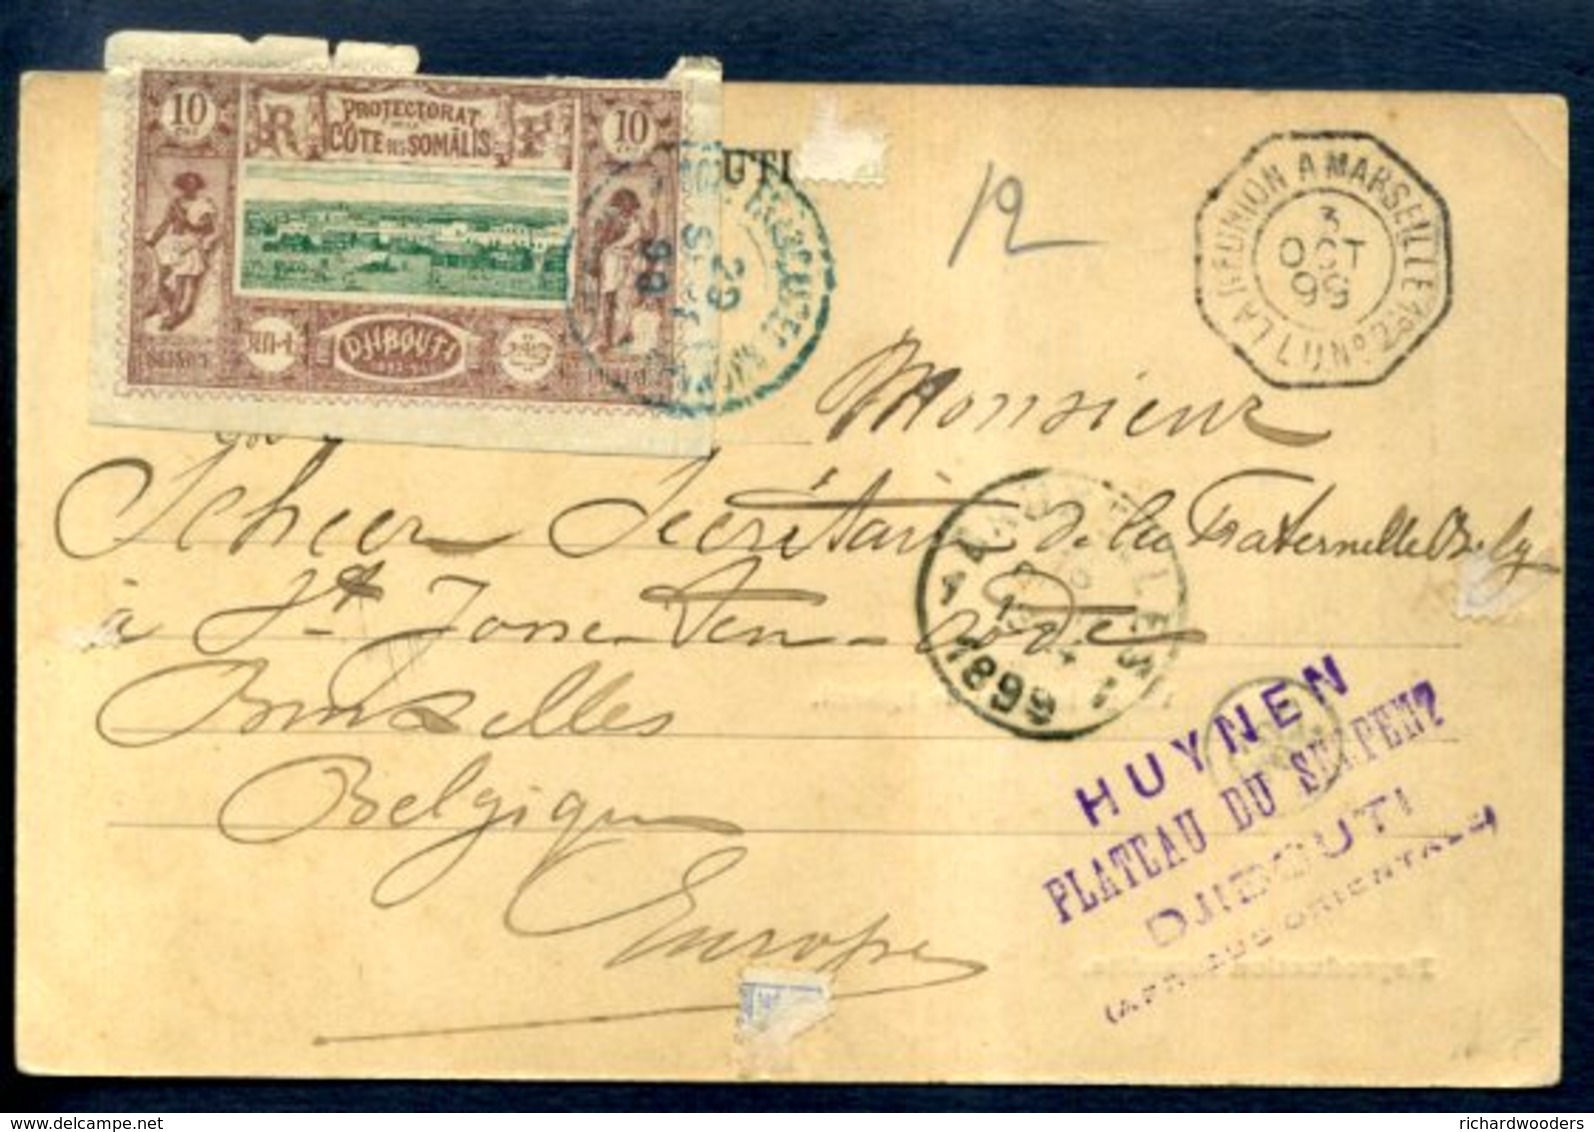 10
PROTECTORAT
DE LA
CÔTE DES SOMALIS
R F
10
DJIBOUTI
UTI
29
SEPT
99
12
LA REUNION A MARSEILLE
3
OCT
99
L.U.Nº2
Monsieur
Scheen Secrétaire de la Fraternelle Belg
à St Josse-ten-noode
Bruxelles
Belgique
Europe
BRUXELLES
1899
HUYNEN
PLATEAU DU SERPENT
DJIBOUTI
(AFRIQUE ORIENTALE)
richardwooders